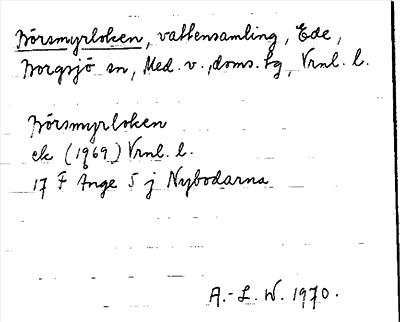 Börsmyrloken, vattensamling, Ede,
Borgsjö sn, Med. v., doms. tg, Vrnl. l.
Börsmyrloken
ek (1969) Vrnl. l.
17 F Ånge 5 j Nybodarna
A.-L. W. 1970.